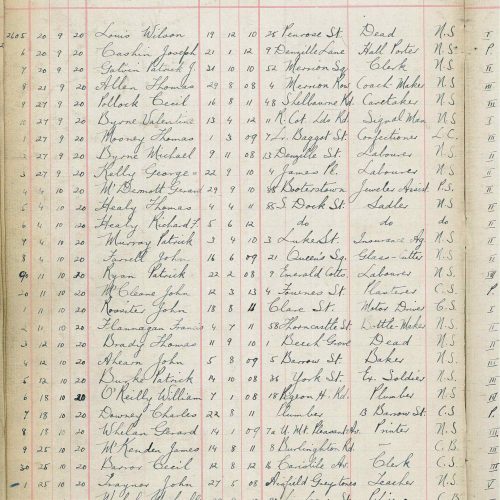 2605 20 9 20 Louis Wilson 19 12 10 25 Penrose St. Dead N.S. V
6 20 9 20 Cashin Joseph 21 1 12 9 Denzille Lane Hall Porter N.S. P
7 20 9 20 Galvin Patrick J. 31 10 10 52 Merrion Sq. Clerk N.S.
8 21 9 20 Allen Thomas 29 8 08 4 Merrion Row Coach Maker N.S.
9 27 9 20 Pollock Cecil 16 8 11 48 Shelbourne Rd. Caretaker N.S.
10 27 9 20 Byrne Valentine 13 4 12 11 R. Cot. Lds Rd Signal Man N.S.
1 27 9 20 Mooney Thomas 1 3 09 7 Lr. Baggot St. Confectioner L.C.
2 27 9 20 Byrne Michael 9 11 08 13 Denzille St. Labourer N.S.
3 27 9 20 Kelly George 22 9 09 4 James Pl. Labourer N.S.
4 4 10 20 McDermott Gerard 29 9 10 Booterstown Jeweler Assist P.S.
5 4 10 20 Healy Thomas 4 4 11 85 S. Dock St. Sadler N.S.
6 4 10 20 Healy Richard F. 5 6 12 do do do
7 4 10 20 Murray Patrick 3 4 10 3 Luke St. Insurance Ag. N.S.
8 4 10 20 Tyrrell John 16 6 09 21 Queens Sq. Glass-cutter N.S.
11 10 20 Ryan Patrick 22 2 08 9 Emerald Cotts Labourer N.S.
20 11 10 20 McCleane John 12 3 13 4 Fownes St. Plasterer C.S. P
1 11 10 20 Rossiter John 18 8 11 Clare St. Motor Driver C.S.
2 11 10 20 Flannagan Francis 4 7 11 58 Thorncastle St. Bottle-Maker N.S.
3 12 10 20 Brady Thomas 11 9 10 1 Beech Grove Dead N.S.
4 12 10 20 Ahearn John 5 8 09 5 Barrow St. Baker N.S.
5 12 10 20 Burke Patrick 14 10 08 36 York St. Ex. Soldier N.S.
6 18 10 20 O'Reilly William 7 1 08 18 Pigeon H. Rd. Plumber N.S.
7 18 10 20 Downey Charles 22 8 11 Plumber 13 Barrow St. C.S. P
8 18 10 20 Whelan Gerard 14 1 09 7a U. Mt. Pleasant Av. Printer N.S.
9 25 10 20 James 14 8 11 Burlington Rd. C.B.
30 25 10 20 Cecil 12 8 12 Av. Clerk C.S.
1 25 10 20 Traynor John 27 5 08 Greystones Teacher N.S.